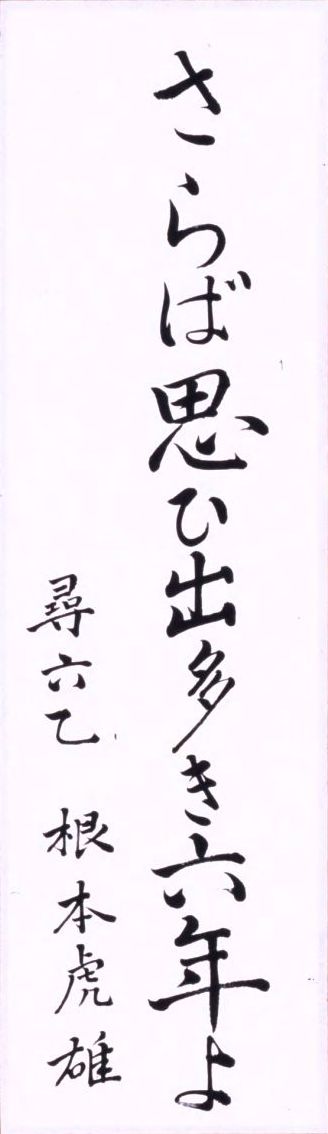 さらば思ひ出多き六年よ
尋六乙 根本虎雄